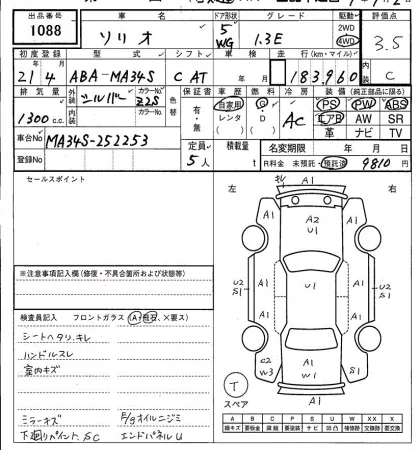 出品番号 車名 ドア形状 グレード 駆動 評価点
1088 ソリオ 5 WG 1.3E 2WD 4WD 3.5
初度登録 型式 シフト 車検 走行(km・マイル) 内装
21 4 ABA-MA34S C AT 年 月 183,960 C
排気量 外装 シルバー カラーNo. Z2S 色替 保証書 車歴 燃料 冷房 装備(純正部品に限る)
1300 c.c. 内装 カラーNo. 有・無 自家用 レンタ G・D AC PS PW ABS
エアB AW SR
革 ナビ TV
車台No. MA34S-252253 定員 積載量 名変期限 年 月 日
登録No. 5人 t R料金 未預託・預託済 9810 円
セールスポイント
左 右
A1
A1 A2 U1 A1
U2 S1 A1 U1 A1 U2 S1
A1 A1
C2 W3 A1 W1 S1
A1
※注意事項記入欄(修復・不具合箇所および状態等)
検査員記入 フロントガラス (A・飛石、×要ス)
シートヘタリ.キレ
ハンドルスレ
室内キズ
ミラーキズ F/gオイルニジミ
下廻りペイント.SC エンドパネルU
T
スペア
A B C P S U W X XX
線キズ 要板金 腐蝕 要塗装 サビ 凹凸 補修跡 交換跡 要交換